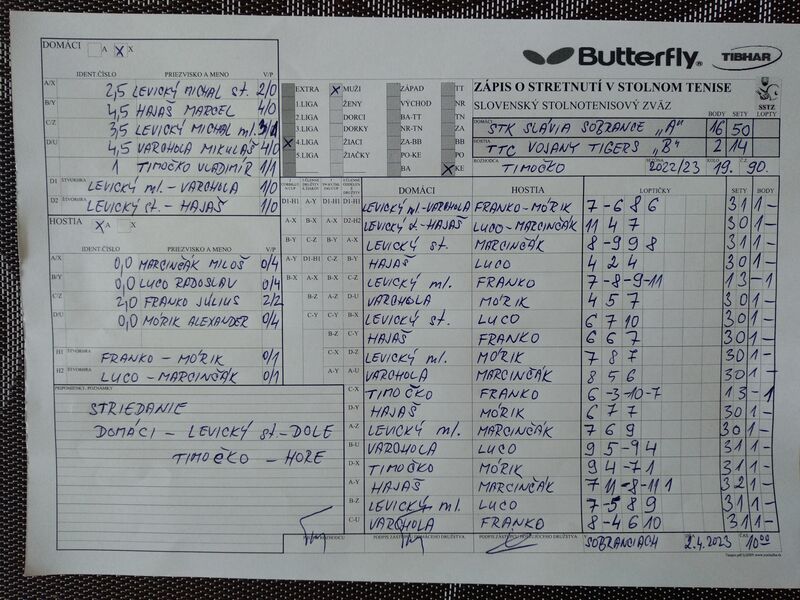 DOMÁCI A X X
Butterfly® TIBHAR
IDENT.ČÍSLO PRIEZVISKO A MENO V/P
A/X 2,5 LEVICKÝ MICHAL st. 2/0
B/Y 4,5 HAJAŠ MARCEL 4/0
C/Z 3,5 LEVICKÝ MICHAL ml. 3/1
D/U 4,5 VARCHOLA MIKULÁŠ 4/0
1 TIMOČKO VLADIMÍR 1/1
D1 ŠTVORHRA LEVICKÝ ml. - VARCHOLA 1/0
D2 ŠTVORHRA LEVICKÝ st. - HAJAŠ 1/0
HOSTIA X A X
IDENT.ČÍSLO PRIEZVISKO A MENO V/P
A/X 0,0 MARCINČÁK MILOŠ 0/4
B/Y 0,0 LUCO RADOSLAV 0/4
C/Z 2,0 FRANKO JÚLIUS 2/2
D/U 0,0 MÓRIK ALEXANDER 0/4
H1 ŠTVORHRA FRANKO - MÓRIK 0/1
H2 ŠTVORHRA LUCO - MARCINČÁK 0/1
PRIPOMIENKY, POZNÁMKY
STRIEDANIE
DOMÁCI - LEVICKÝ st. - DOLE
TIMOČKO - HORE
EXTRA X MUŽI ZÁPAD TT
1.LIGA ŽENY VÝCHOD NR
2.LIGA DORCI BA-TT TN
3.LIGA DORKY NR-TN ZA
X 4.LIGA ŽIACI ZA-BB BB
5.LIGA ŽIAČKY PO-KE PO
BA X KE
ZÁPIS O STRETNUTÍ V STOLNOM TENISE
SLOVENSKÝ STOLNOTENISOVÝ ZVÄZ
SSTZ
BODY SETY LOPTY
DOMÁCI STK SLÁVIA SOBRANCE „A" 16 50
HOSTIA TTC VOJANY TIGERS „B" 2 14
ROZHODCA TIMOČKO 2022/23 KOLO 19. Č.Z. 90.
DOMÁCI HOSTIA LOPTIČKY SETY BODY
D1-H1 A-Y D1-H1 D1-H1 LEVICKÝ ml.-VARCHOLA FRANKO-MÓRIK 7 -6 8 6 3 1 1 -
A-X B-X A-X D2-H2 LEVICKÝ st.-HAJAŠ LUCO-MARCINČÁK 11 4 7 3 0 1 -
B-Y C-Z B-Y A-X LEVICKÝ st. MARCINČÁK 8 -9 9 8 3 1 1 -
A-Y D1-H1 C-Z B-Y HAJAŠ LUCO 4 2 4 3 0 1 -
B-X A-X B-X C-Z LEVICKÝ ml. FRANKO 7 -8 -9 -11 1 3 - 1
B-Z A-Z D-U VARCHOLA MÓRIK 4 5 7 3 0 1 -
C-Y C-Y B-X LEVICKÝ st. LUCO 6 7 10 3 0 1 -
HAJAŠ FRANKO 6 6 7 3 0 1 -
C-X D-Z LEVICKÝ ml. MÓRIK 7 8 7 3 0 1 -
A-Y A-U VARCHOLA MARCINČÁK 8 5 6 3 0 1 -
C-X TIMOČKO FRANKO 6 -3 -10 -7 1 3 - 1
D-Y HAJAŠ MÓRIK 6 7 7 3 0 1 -
A-Z LEVICKÝ ml. MARCINČÁK 7 6 9 3 0 1 -
B-U VARCHOLA LUCO 9 5 -9 4 3 1 1 -
D-X TIMOČKO MÓRIK 9 4 -7 1 3 1 1 -
A-Y HAJAŠ MARCINČÁK 7 11 -8 -11 1 3 2 1 -
B-Z LEVICKÝ ml. LUCO 7 -5 8 9 3 1 1 -
C-U VARCHOLA FRANKO 8 -4 6 10 3 1 1 -
PODPIS ZÁSTUPCU DOMÁCEHO DRUŽSTVA PODPIS ZÁSTUPCU HOSŤUJÚCEHO DRUŽSTVA V SOBRANCIACH 2.4.2023 ČAS 10:00